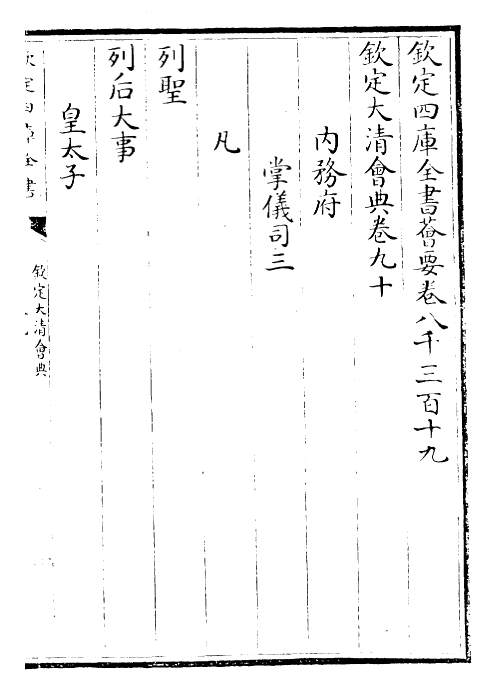 欽定四庫全書薈要卷八千三百十九
欽定大清會典卷九十
內務府
掌儀司三
凡
列聖
列后大事
皇太子
欽定四庫全書
欽定大清會典